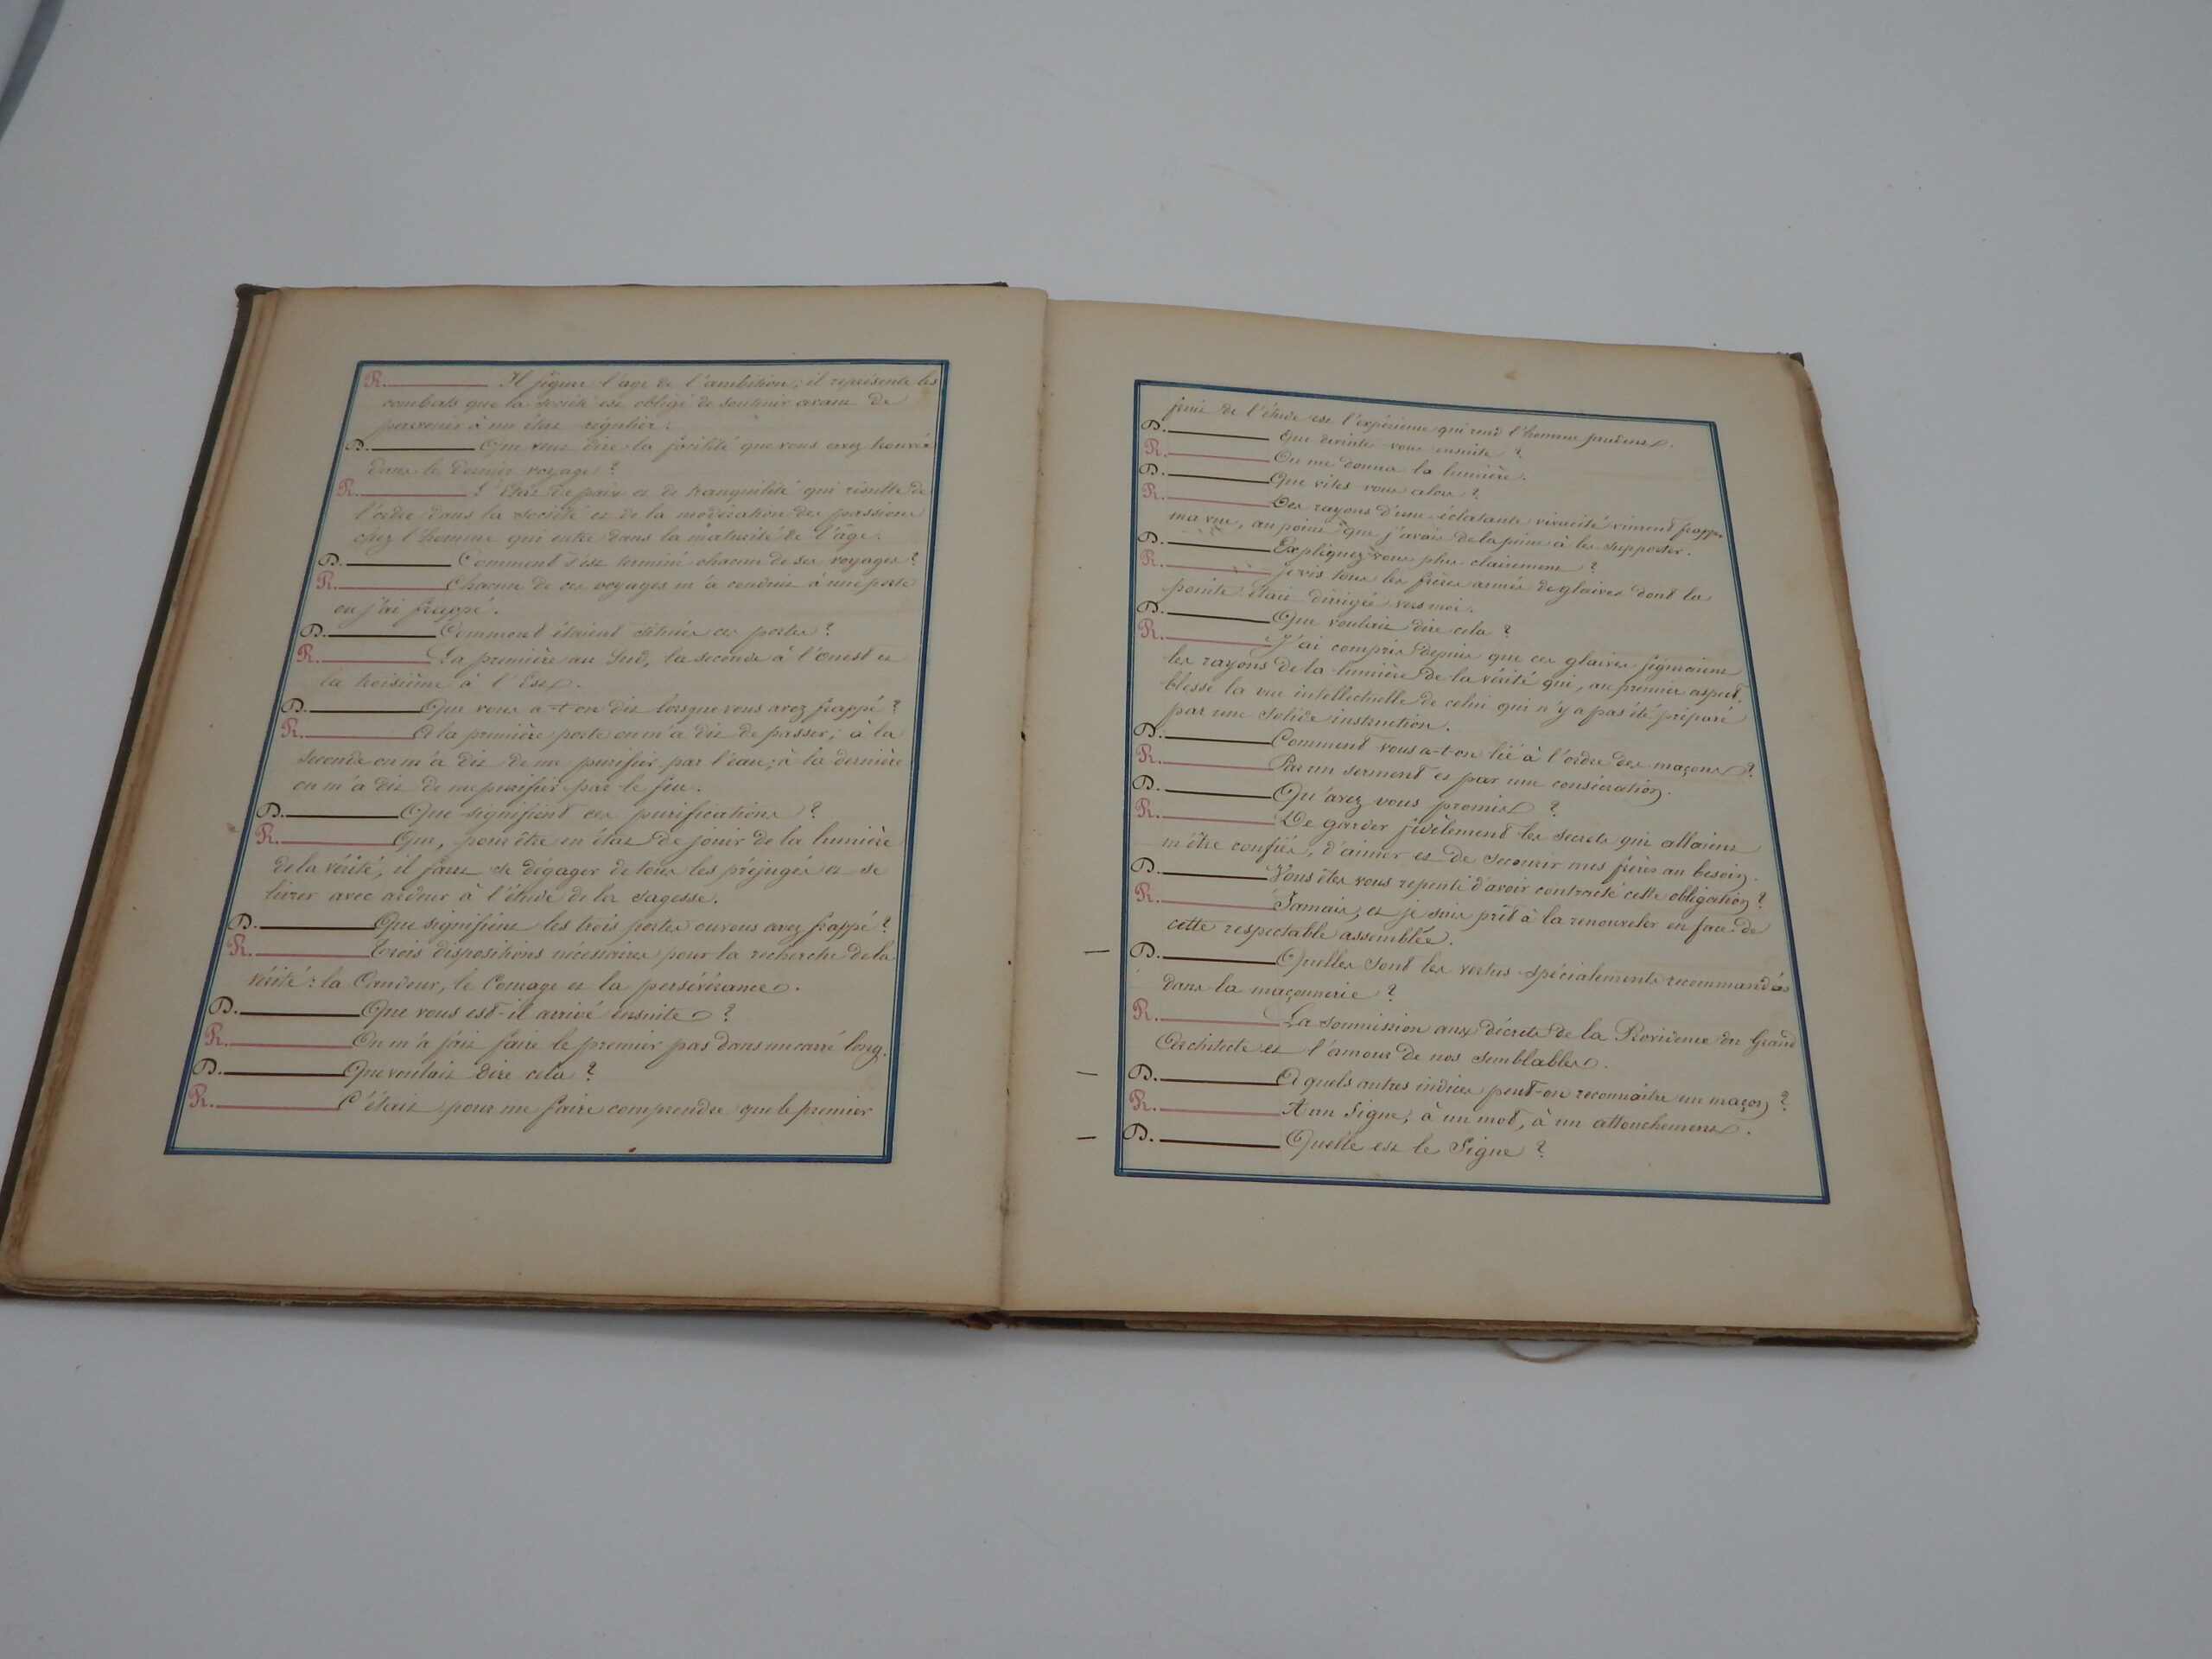 R. Il figure l'age de l'ambition ; il représente les
combats que la société est obligé de soutenir avant de
parvenir à un état régulier.
D. Que veut dire la facilité que vous avez trouvée
dans le dernier voyage ?
R. L'Etat de paix et de tranquilité qui résulte de
l'ordre dans la société et de la modération des passions
chez l'homme qui entre dans la maturité de l'âge.
D. Comment s'est terminé chacun de ses voyages ?
R. Chacun de ces voyages m'a conduit à une porte
ou j'ai frappé.
D. Comment étaient situées ces portes ?
R. La première au Sud, la seconde à l'Ouest et
la troisième à l'Est.
D. Que vous a-t-on dit lorsque vous avez frappé ?
R. A la première porte on m'a dit de passer ; à la
seconde on m'a dit de me purifier par l'eau ; à la dernière
on m'a dit de me purifier par le feu.
D. Que signifient ces purifications ?
R. Que, pour être en état de jouir de la lumière
de la vérité, il faut se dégager de tous les préjugés et se
livrer avec ardeur à l'étude de la sagesse.
D. Que signifient les trois portes ou vous avez frappé ?
R. Trois dispositions nécessaires pour la recherche de la
vérité : la Candeur, le Courage et la persévérance.
D. Que vous est-il arrivé ensuite ?
R. On m'a fait faire le premier pas dans un carré long.
D. Que voulait dire cela ?
R. C'était pour me faire comprendre que le premier
fruit de l'étude est l'expérience qui rend l'homme prudent.
D. Que devintes vous ensuite ?
R. On me donna la lumière.
D. Que vites-vous alors ?
R. Des rayons d'une éclatante vivacité vinrent frapper
ma vue, au point que j'avais de la peine à les supporter.
D. Expliquez vous plus clairement ?
R. je vis tous les frères armés de glaives dont la
pointe était dirigée vers moi.
D. Que voulait dire cela ?
R. J'ai compris depuis que ces glaives figuraient
les rayons de la lumière de la vérité qui, au premier aspect,
blesse la vue intellectuelle de celui qui n'y a pas été préparé
par une solide instruction.
D. Comment vous a-t-on lié à l'ordre des maçons ?
R. Par un serment et par une consécration.
D. Qu'avez vous promis ?
R. De garder fidèlement les secrets qui allaient
m'être confiés, d'aimer et de secourir mes frères au besoin.
D. Vous êtes vous repenti d'avoir contracté cette obligation ?
R. Jamais, et je suis prêt à la renouveler en face de
cette respectable assemblée.
D. Quelles sont les vertus spécialements recommandés
dans la maçonnerie ?
R. La soumission aux décrets de la Providence du Grand
Architecte et l'amour de nos semblables.
D. A quels autres indices peut-on reconnaitre un maçon ?
R. A un Signe, à un mot, à un attouchement.
D. Quelle est le Signe ?